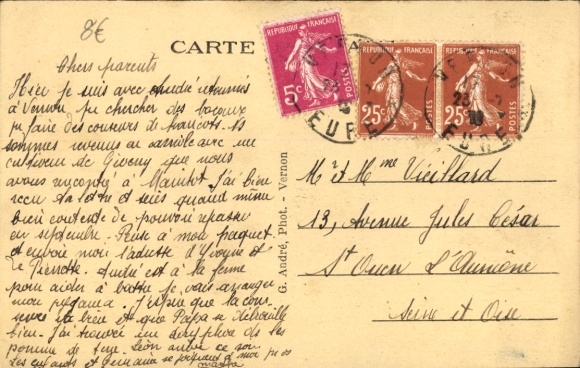 8€
CARTE
REPUBLIQUE FRANÇAISE
5c
POSTES
REPUBLIQUE FRANÇAISE
25c
POSTES
REPUBLIQUE FRANÇAISE
25c
POSTES
VERNON
EURE
VERNON
EURE
Chers parents
Hier je suis avec André
à Vernon chercher des bocaux
pr faire des conserves de haricots. ns
sommes revenus au avec un
cultivateur de Giverny que nous
avons rencontré à J'ai bien
reçu ta lettre et suis quand même
bien contente de pouvoir repasser
en septembre. Pense à mon paquet
et envoie moi l'adresse d'Yvonne et
de Pierrette. André est à la ferme
pour aider à battre je vais arranger
mon pyjama. J'espère que la
est bien et que Papa se débrouille
bien. J'ai trouvé un des
pomme de terre. Léon ce soir
Les enfants et Germaine se
G. André, Phot. - Vernon
Mr et Mme Vieillard
13, Avenue Jules César
St Ouen L'Aumône
Seine et Oise